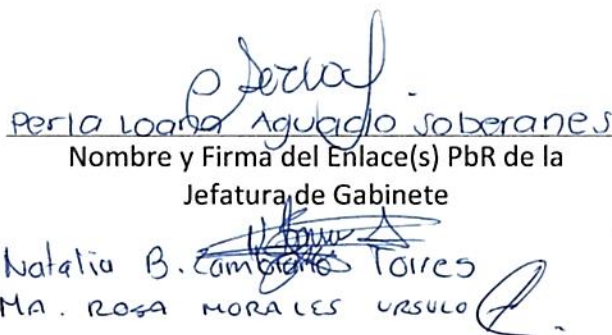 Perla Loana Aguado Soberanes
Nombre y Firma del Enlace(s) PbR de la
Jefatura de Gabinete
Natalia B. Torres
MA. ROSA MORALES URSULO